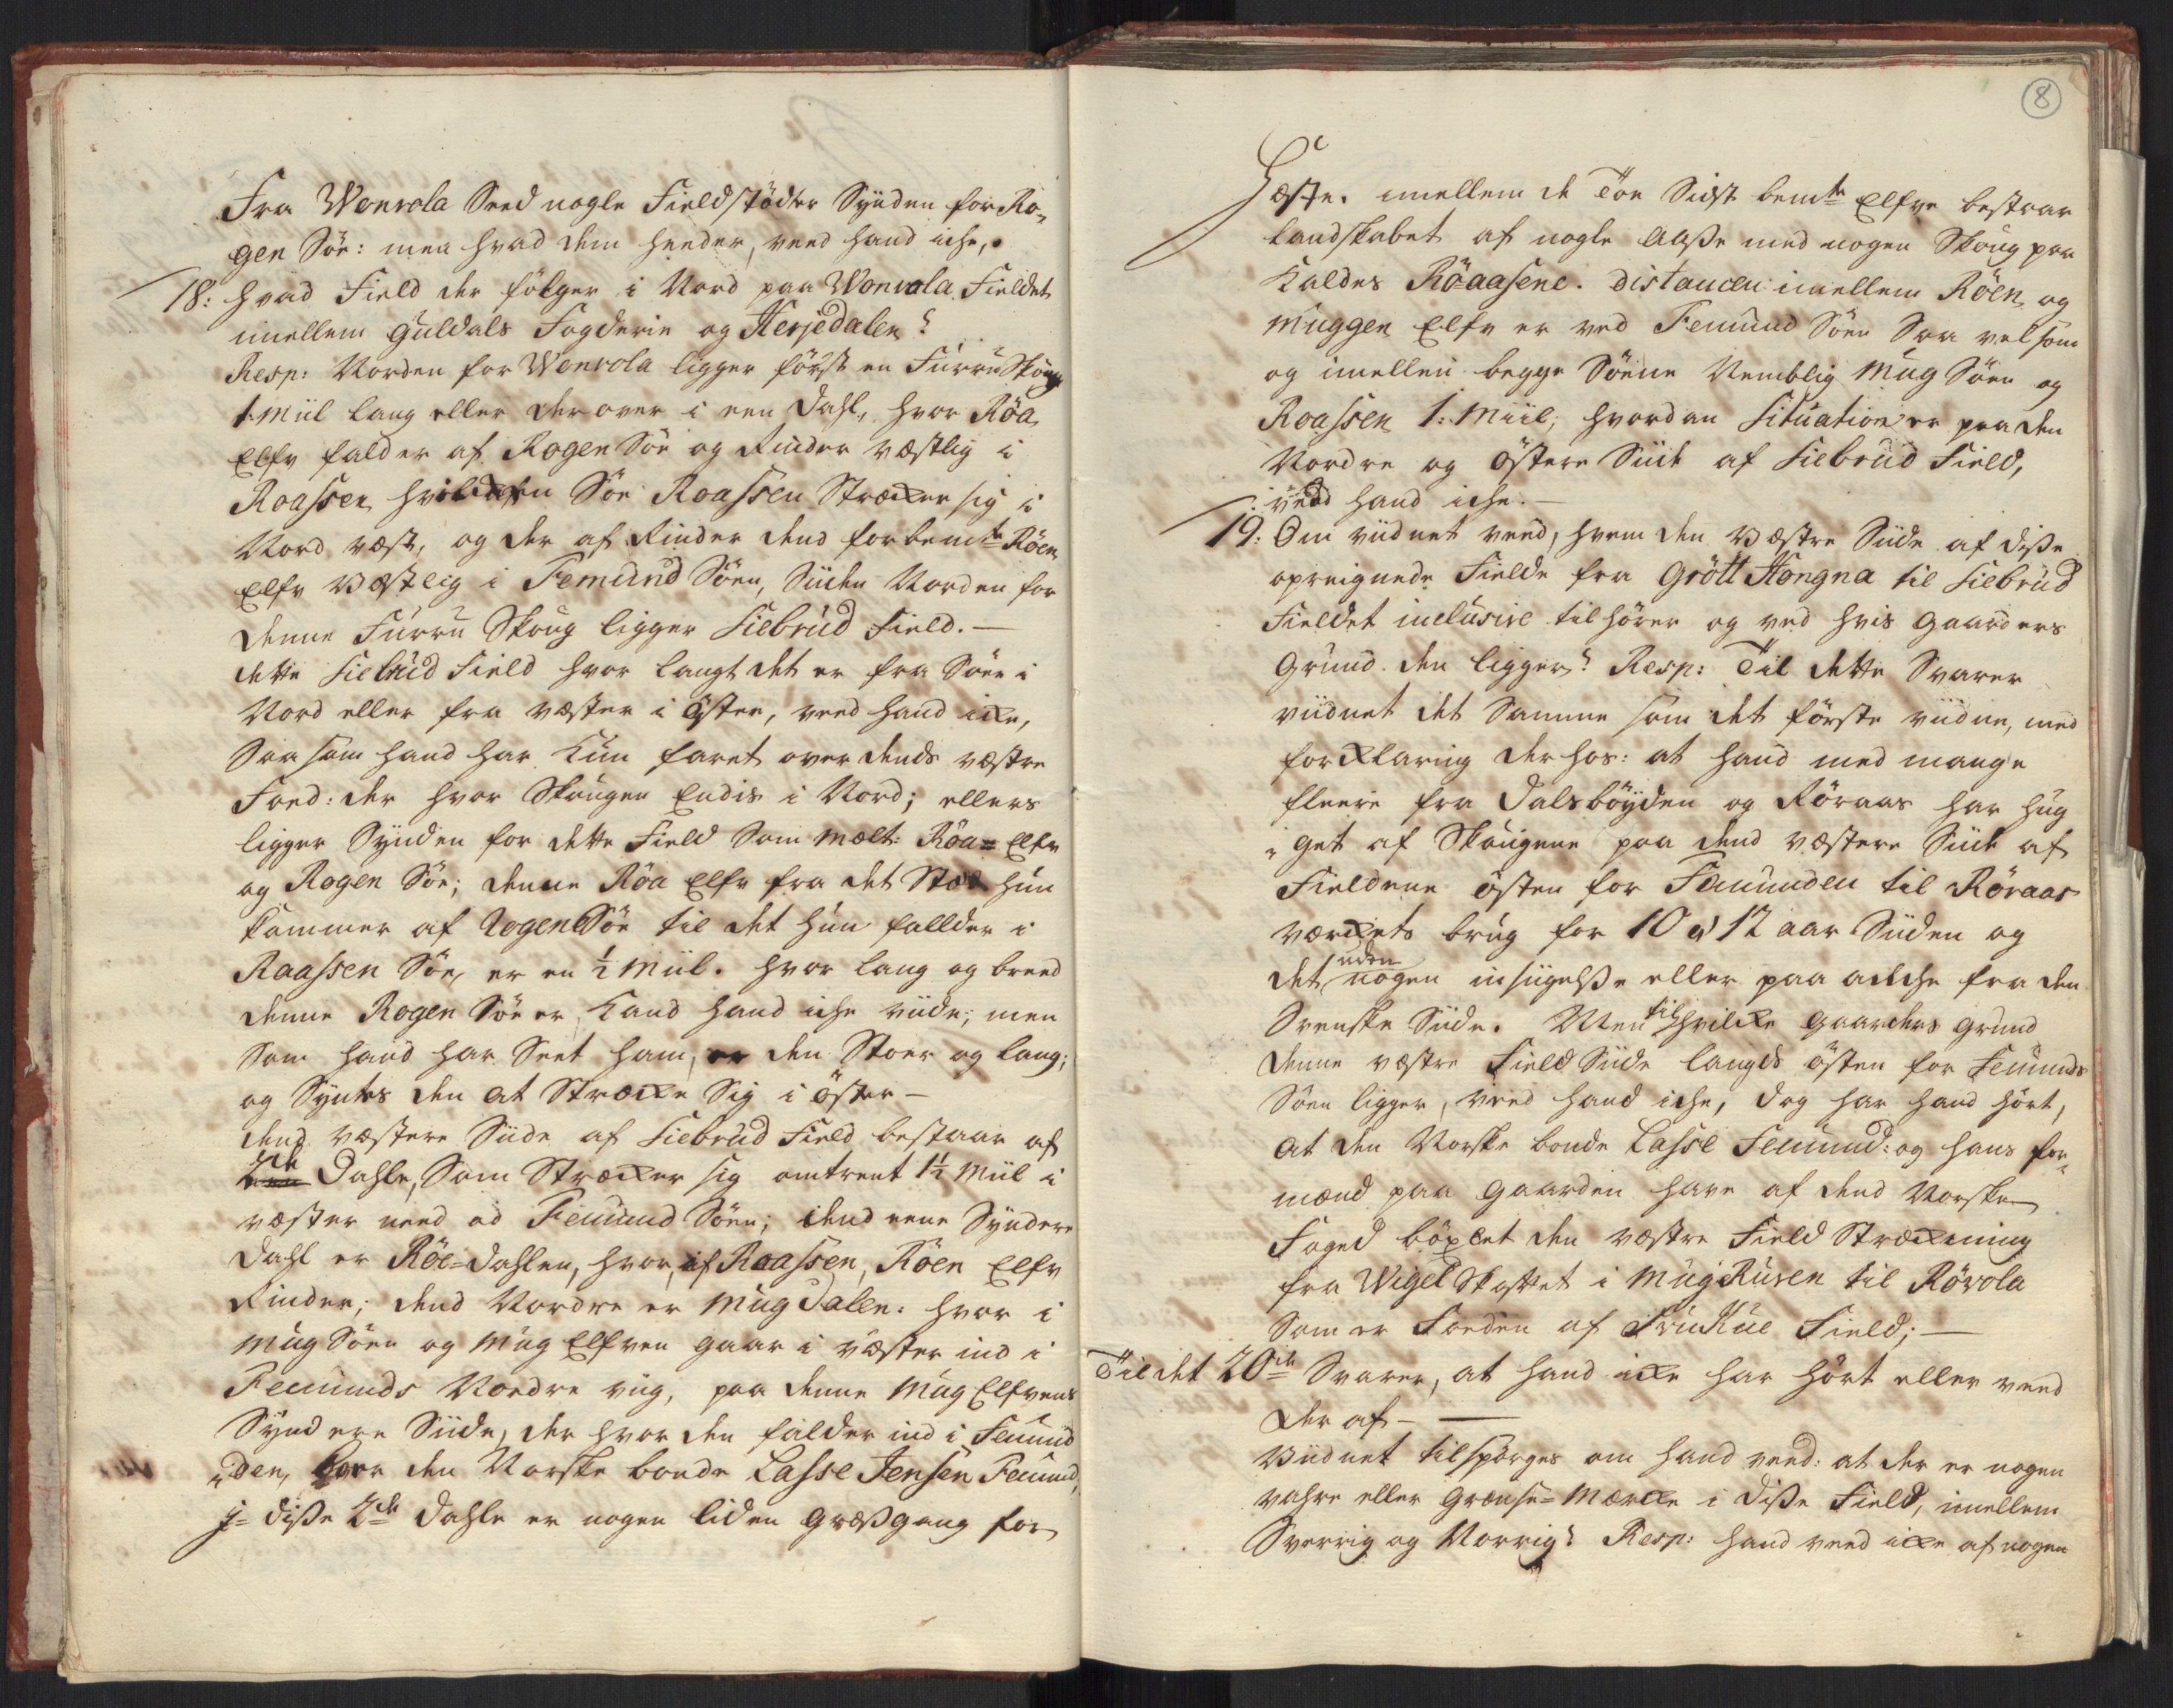 Fra Wonvola Seed nogle Fieldstödter Synden for Ro„
gen Söe: men hvad dem heeder, veed hand iche,
18: hvad Field der fölger i Nord paa Wonvola Fieldet
imellem Guldals Fogderie og Herjedalen?
Resp: Norden for Wonvola ligger först en Furru Skoug
1. Miil lang eller derover i een Dahl, hvor Röa
Elfv falder af Rogen Söe og Rinder væstlig i
Roassen, hvilchen Söe Roassen Stræcker sig i
Nord væst, og der af Rinder dend forbemte Röen
Elfv Væstlig i Femund Söen, Siiden Norden for
denne Furru Skoug ligger Siebrud Field. —
dette Siebrud Field hvor langt det er fra Söer i
Nord eller fra væster i Öster, veed hand icke,
Saa som hand har Kun faret over dends væstre
Foed: der hvor Skougen Endis i Nord; ellers
ligger Synden for dette Field Som mælt: Röa = Elfv
og Rogen Söe; denne Röa Elfv fra det Stæd hun
kommer af Rogen Söe til det hun fallder i
Raassen Söe, er en ½ Miil. hvor lang og breed
denne Rogen Söe er, Kand hand iche viide, men
Som hand har Seet ham, er den Stoer og lang;
og Syntes den at Strecke Sig i Öster —
dend væstere Siide af Siebrud Field bestaar af
2de Dahle, Som Strecker sig omtrent 1½ Miil i
væster need ad Femund Söen; dend eene Syndere
Dahl er Röe=dahlen, hvor af Roassen, Röen Elfv
Rinder; dend Nordre er Mugdalen: hvor i
Mug Söen og Mug Elfven gaar i væster ind i
Femunds Nordre viig, paa denne Mug Elfvens
Syndere Siide, der hvor den falder ind i Femund
„den, boer den Norske bonde Lasse Jensen Femund,
J= disse 2de Dahle er nogen liden Græsgang for
8
Hæste. imellem de toe Sidst bemte Elfve bestaar
Landskabet af nogle Aasse med nogen Skoug paa
Kaldes Röaasene. Distancen imellem Röen og
Muggen Elfv er ved Femund Söen Saa vel som
og imellem begge Söene Nemblig Mug Söen og
Roassen 1. Miil; hvordan Situation er paa den
Nordre og Östere Siide af Siebrud Field,
veed hand iche. —
19: Om viidnet veed, hvem den Væstre Siide af disse
opreignede Fielde fra Grött Hongna til Siebrud
Fieldet inclusive tilhörer og ved hvis gaarders
Grund den ligger? Resp: Til dette Svarer
viidnet det Samme som det förste viidne, med
forklaring derhos: at hand med mange
fleere fra Dalsböyden og Röraas har hug
„get af Skougene paa dend væstere Siide af
Fieldene Östen for Femunden til Röraas
værckets brug for 10 a 12 aar Siiden og
det uden nogen insigelse eller paa ancke fra den
Svenske Siide. Men til hvilcke gaarders grund
denne væstre Field Siide langds Östen for Femunds
Söen ligger, veed hand iche, dog har hand hört,
at den Norske bonde Lasse Femund: og hans for„
mænd paa gaarden have af dend Norske
Foged böxlet den væstre Field Strækning
fra Wigel Skaftet i Mug Rusen til Rövola
Som er Foeden af Fruhue Field; —
Til det 20de Svarer, at hand icke har hört eller veed
der af —
Viidnet tilspörges om hand veed: at der er nogen
vahre eller Grænse=Mærcke i disse Field, imellem
Sverrig og Norrig? Resp: hand veed icke af nogen